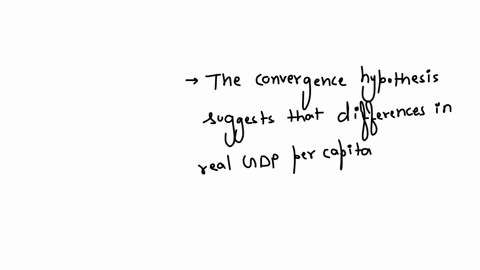 → The convergence hypothesis
suggests that differences in
real GDP per capita